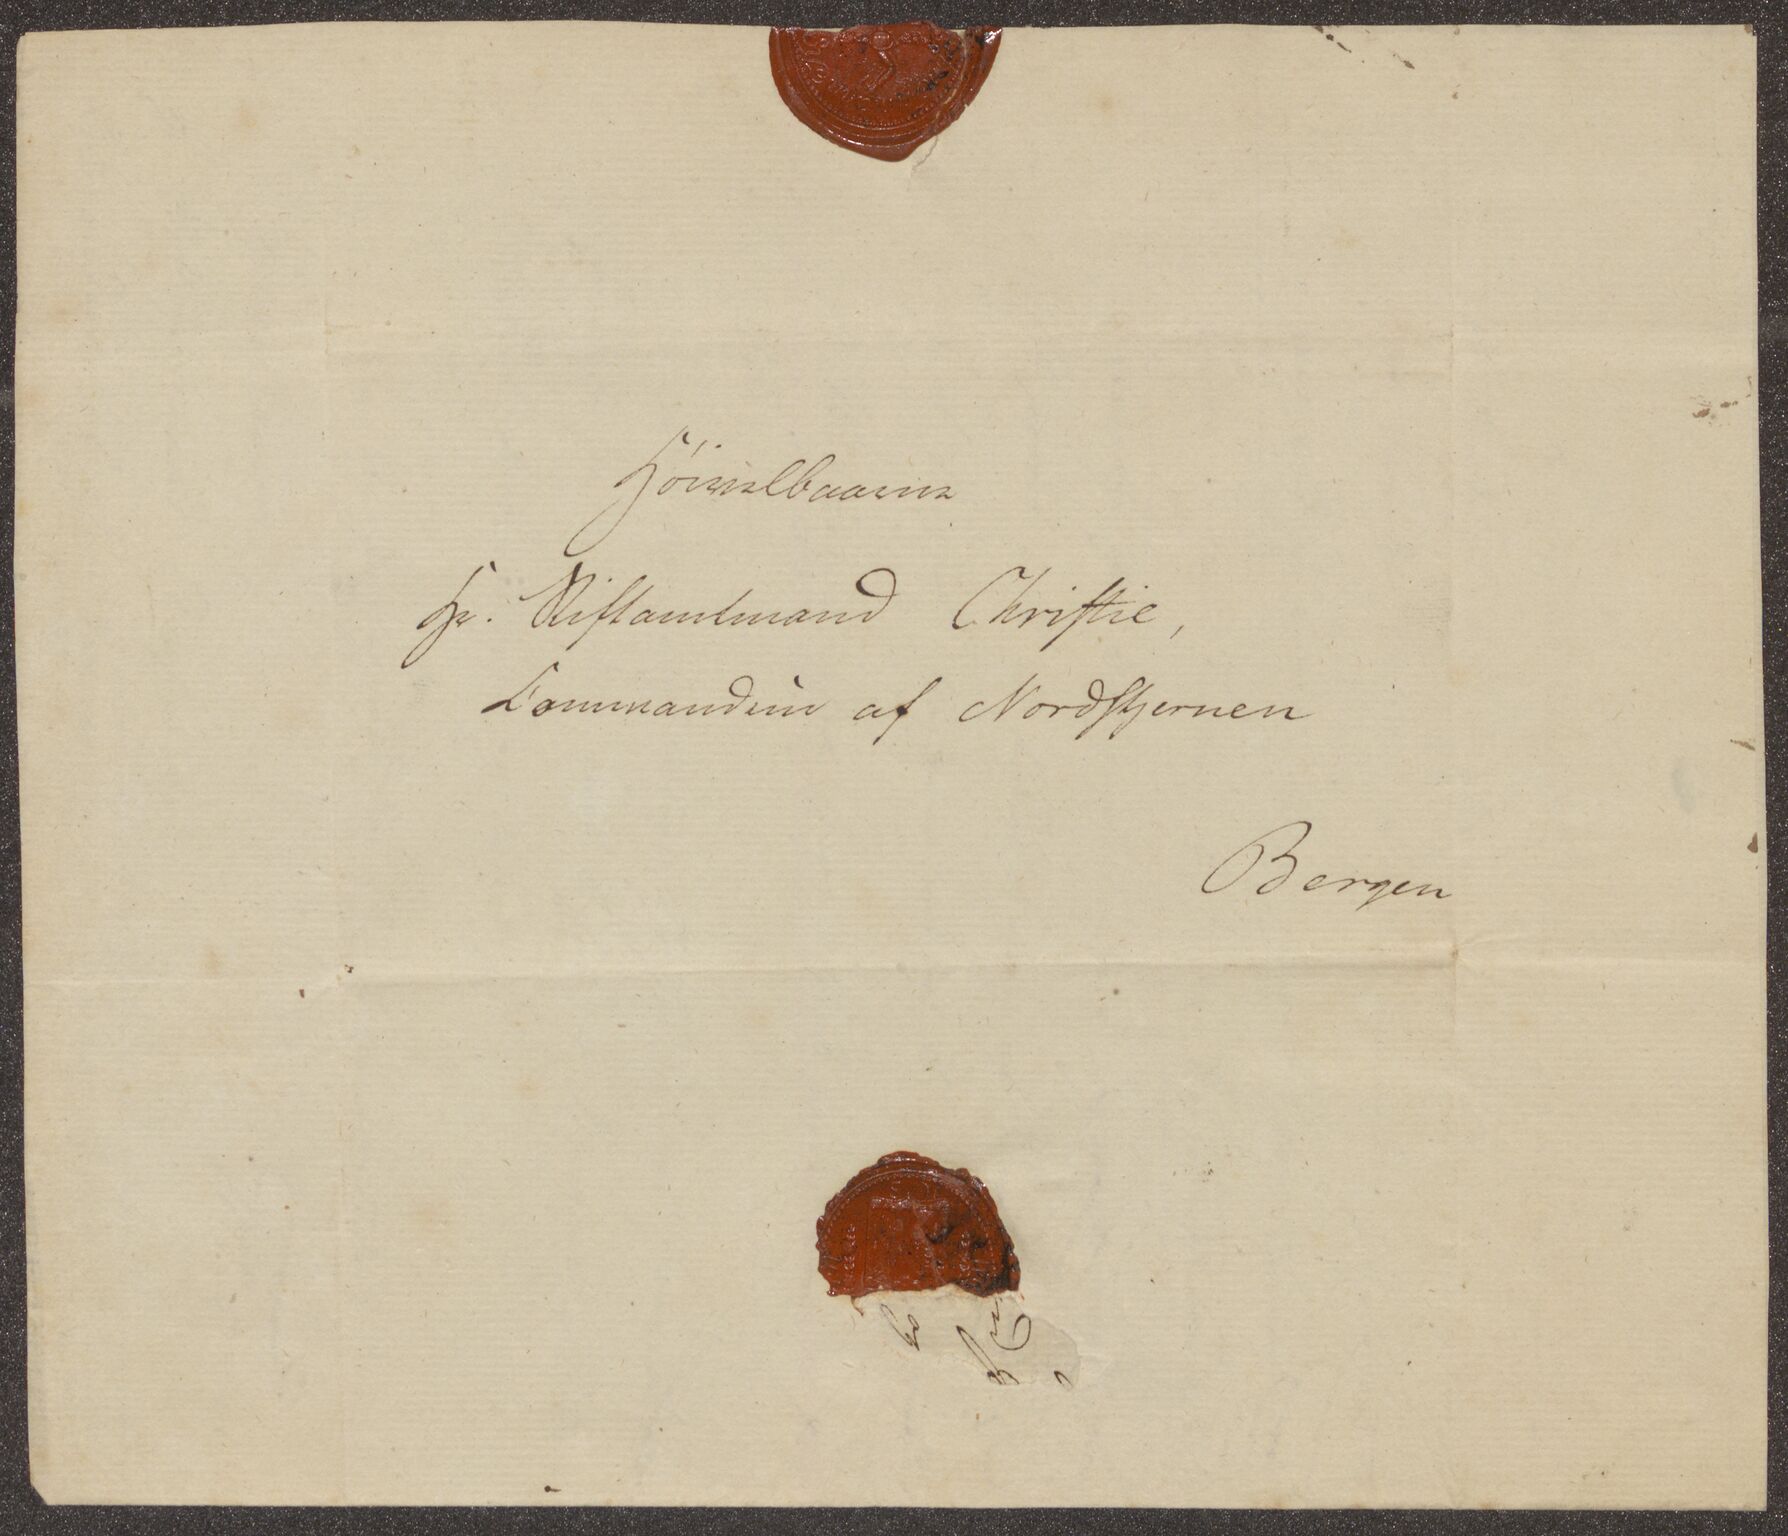 Höivelbaarne
Hr. Stiftamtmand Christie,
Commandeur af Nordstjernen
Bergen